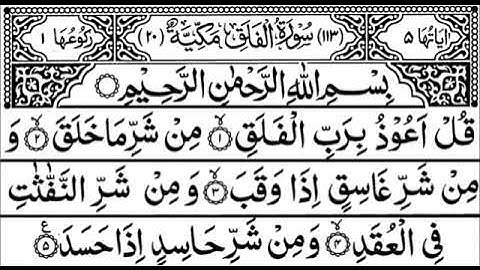 اٰيَاتُهَا ٥ (١١٣) سُوْرَةُ الْفَلَقِ مَكِّيَّةٌ (٢٠) رُكُوْعُهَا ١
بِسْمِ اللهِ الرَّحْمٰنِ الرَّحِيْمِ
قُلْ اَعُوْذُ بِرَبِّ الْفَلَقِ ١ مِنْ شَرِّ مَا خَلَقَ ٢ وَ
مِنْ شَرِّ غَاسِقٍ اِذَا وَقَبَ ٣ وَ مِنْ شَرِّ النَّفّٰثٰتِ
فِي الْعُقَدِ ٤ وَمِنْ شَرِّ حَاسِدٍ اِذَا حَسَدَ ٥ ع